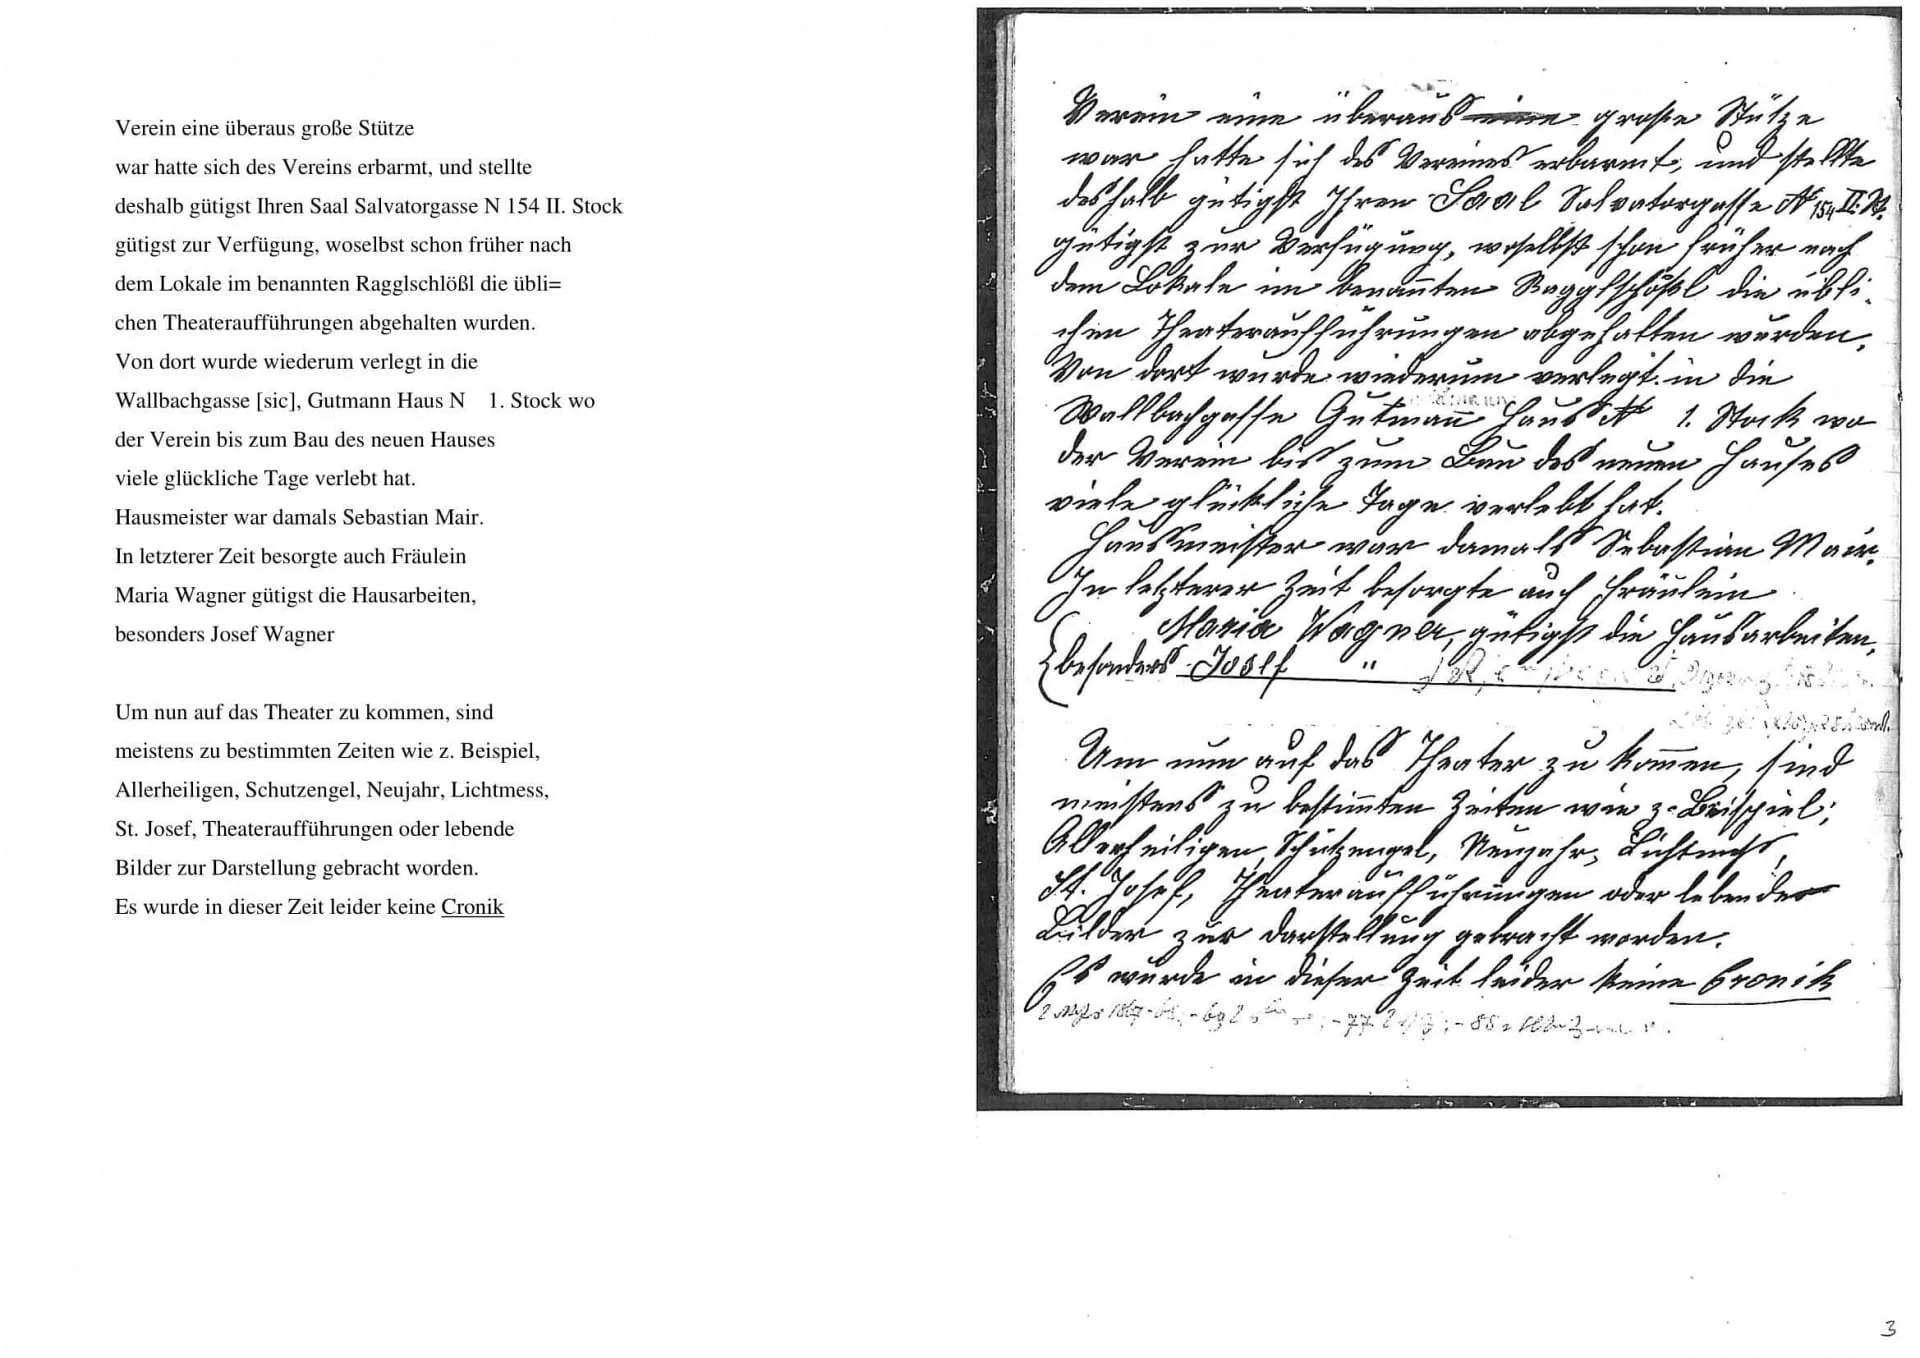 Verein eine überaus große Stütze
war hatte sich des Vereins erbarmt, und stellte
deshalb gütigst Ihren Saal Salvatorgasse N 154 II. Stock
gütigst zur Verfügung, woselbst schon früher nach
dem Lokale im benannten Ragglschlößl die übli=
chen Theateraufführungen abgehalten wurden.
Von dort wurde wiederum verlegt in die
Wallbachgasse [sic], Gutmann Haus N    1. Stock wo
der Verein bis zum Bau des neuen Hauses
viele glückliche Tage verlebt hat.
Hausmeister war damals Sebastian Mair.
In letzterer Zeit besorgte auch Fräulein
Maria Wagner gütigst die Hausarbeiten,
besonders Josef Wagner
Um nun auf das Theater zu kommen, sind
meistens zu bestimmten Zeiten wie z. Beispiel,
Allerheiligen, Schutzengel, Neujahr, Lichtmess,
St. Josef, Theateraufführungen oder lebende
Bilder zur Darstellung gebracht worden.
Es wurde in dieser Zeit leider keine Cronik
Verein eine überaus große Stütze
war hatte sich des Vereines erbarmt, und stellte
deshalb gütigst Ihren Saal Salvatorgasse N 154 II. St.
gütigst zur Verfügung, woselbst schon früher nach
dem Lokale im benannten Ragglschlößl die übli-
chen Theateraufführungen abgehalten wurden.
Von dort wurde wiederum verlegt in die
Wallbachgasse Gutmann Haus N 1. Stock wo
der Verein bis zum Bau des neuen Hauses
viele glückliche Tage verlebt hat.
Hausmeister war damals Sebastian Mair.
In letzterer Zeit besorgte auch Fräulein
Maria Wagner, gütigst die Hausarbeiten,
besonders Josef "
Um nun auf das Theater zu kommen, sind
meistens zu bestimmten Zeiten wie z. Beispiel;
Allerheiligen, Schutzengel, Neujahr, Lichtmess,
St. Josef, Theateraufführungen oder lebende
Bilder zur Darstellung gebracht worden.
Es wurde in dieser Zeit leider keine Cronik
3